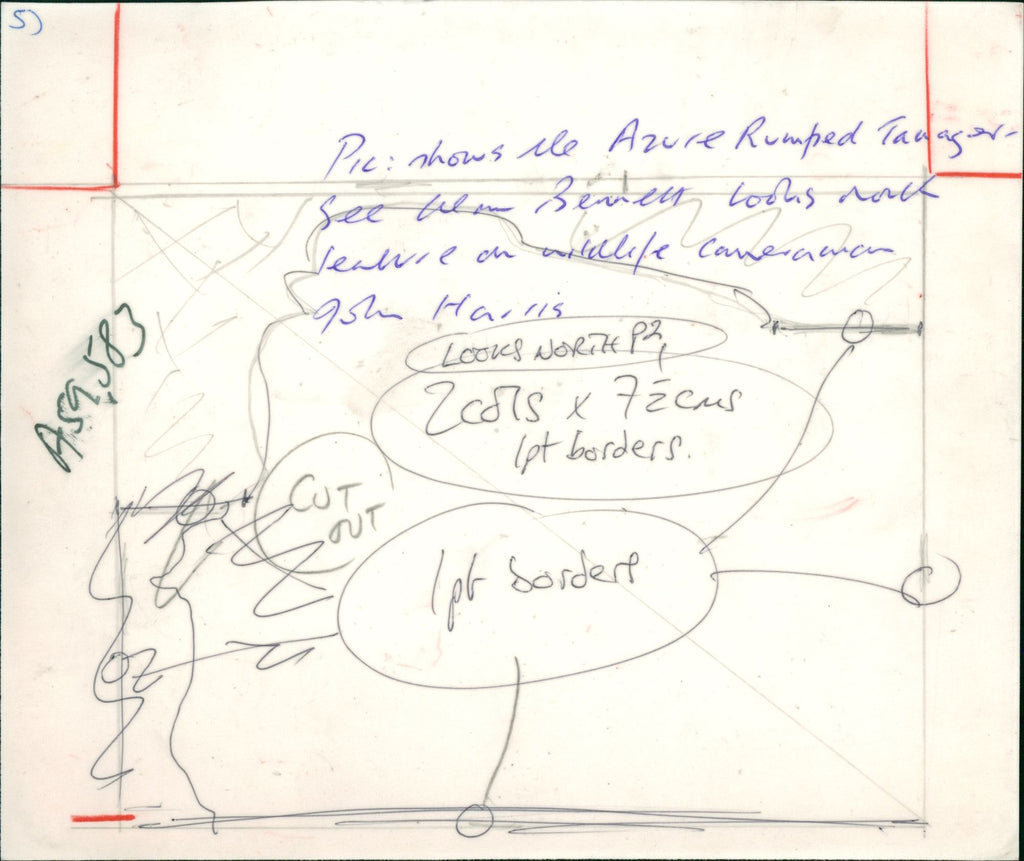 5)
Pic: shows the Azure Rumped Tanager-
See Alan Bennett Looks north
feature on wildlife cameraman
John Harris
LOOKS NORTH P2,
2cols x 72cms
1pt borders.
A59,583
CUT
OUT
1pt borders